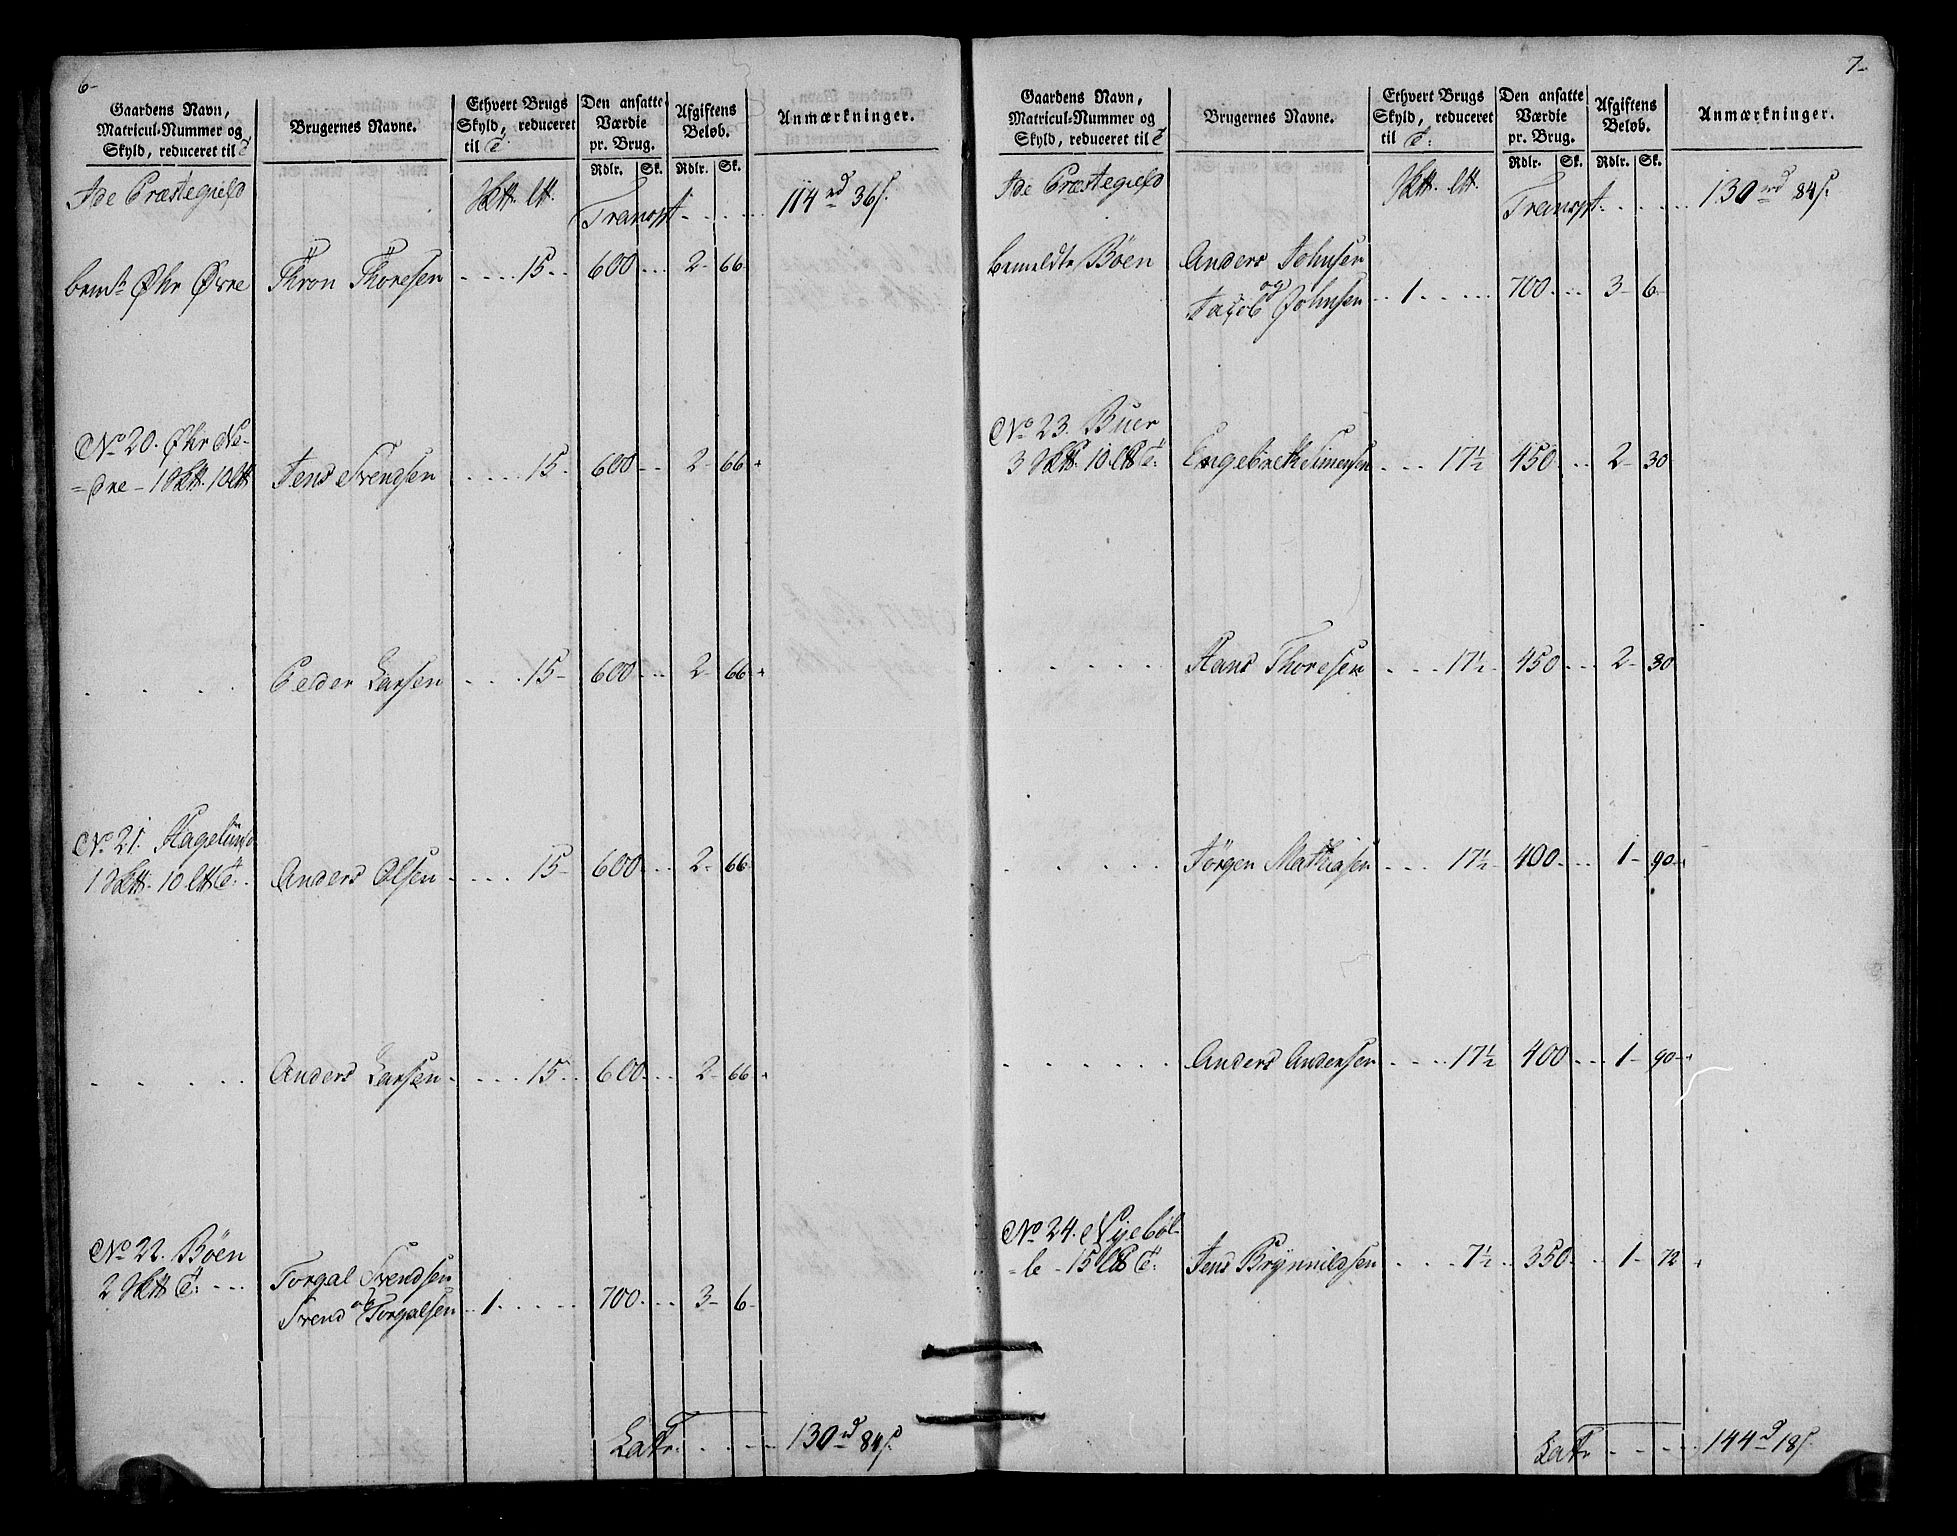 6-
Gaardens Navn, Matricul-Nummer og Skyld, reduceret til
Brugernes Navne.
Ethvert Brugs Skyld, reduceret til
Den ansatte Værdie pr. Brug.
Rdlr. Sk.
Afgiftens Beløb.
Rdlr. Sk.
Anmærkninger.
Ide Præstegield
Transpt. 114 rd 36 s.
bem.te Øhr Øvre Thron Thoresen 15 600 2- 66
No 20. Øhr Ne-
=dre - 1 Sktt. 10 ltt Jens Svendsen 15 600 2- 66
Peder Larsen 15 600 2- 66
No 21. Hagelund
1 Sktt. 10 ltt Anders Olsen 15 600 2- 66
Anders Larsen 15 600 2- 66
No 22. Böen
2 Sktt Torgal Svendsen
og
Svend Torgalsen 1 700 3- 6
Latr. 130 rd 84 s.
7-
Gaardens Navn, Matricul-Nummer og Skyld, reduceret til
Brugernes Navne.
Ethvert Brugs Skyld, reduceret til
Den ansatte Værdie pr. Brug.
Rdlr. Sk.
Afgiftens Beløb.
Rdlr. Sk.
Anmærkninger.
Ide Præstegield
Transpt. 130 rd 84 s.
bemeldte Böen Anders Johnsen
og
Jacob Johnsen 1 700 3- 6
No 23. Buer
3 Sktt. 10 Engebreth Simensen 17½ 450 2- 30
Hans Thoresen 17½ 450 2- 30
Jörgen Mathiasen 17½ 400 1- 90
Anders Andersen 17½ 400 1- 90
No 24. Nyeböl-
=le - 15 Jens Brynnildsen 7½ 350 1- 72
Latr 144 rd 18 s.